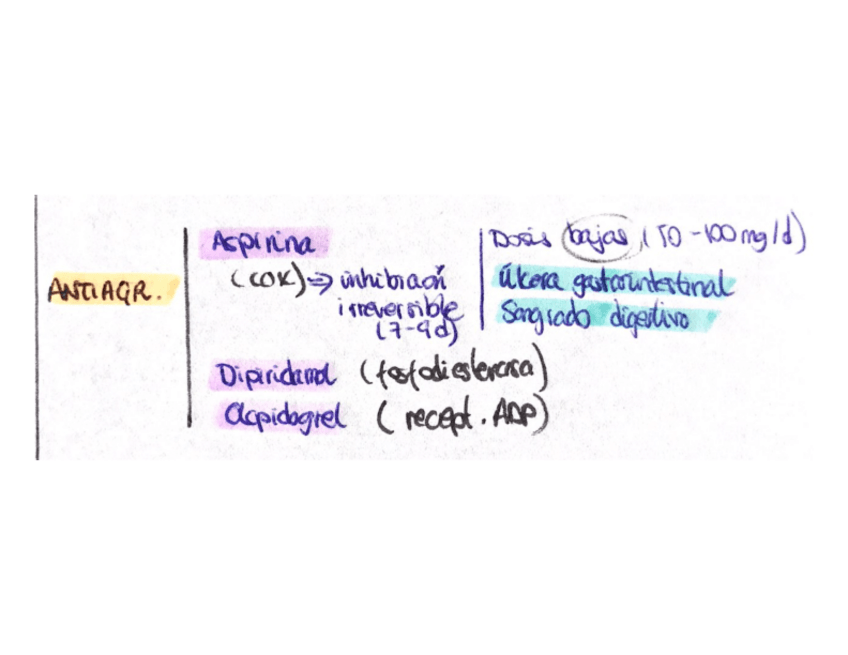 ANTIAGR.
Aspirina
(COX) ⇒ inhibición
irreversible
(7-9d)
Dosis bajas (50-100mg/d)
Úlcera gastrointestinal
Sangrado digestivo
Dipiridamol (fosfodiesterasa)
Clopidogrel (recept. ADP)